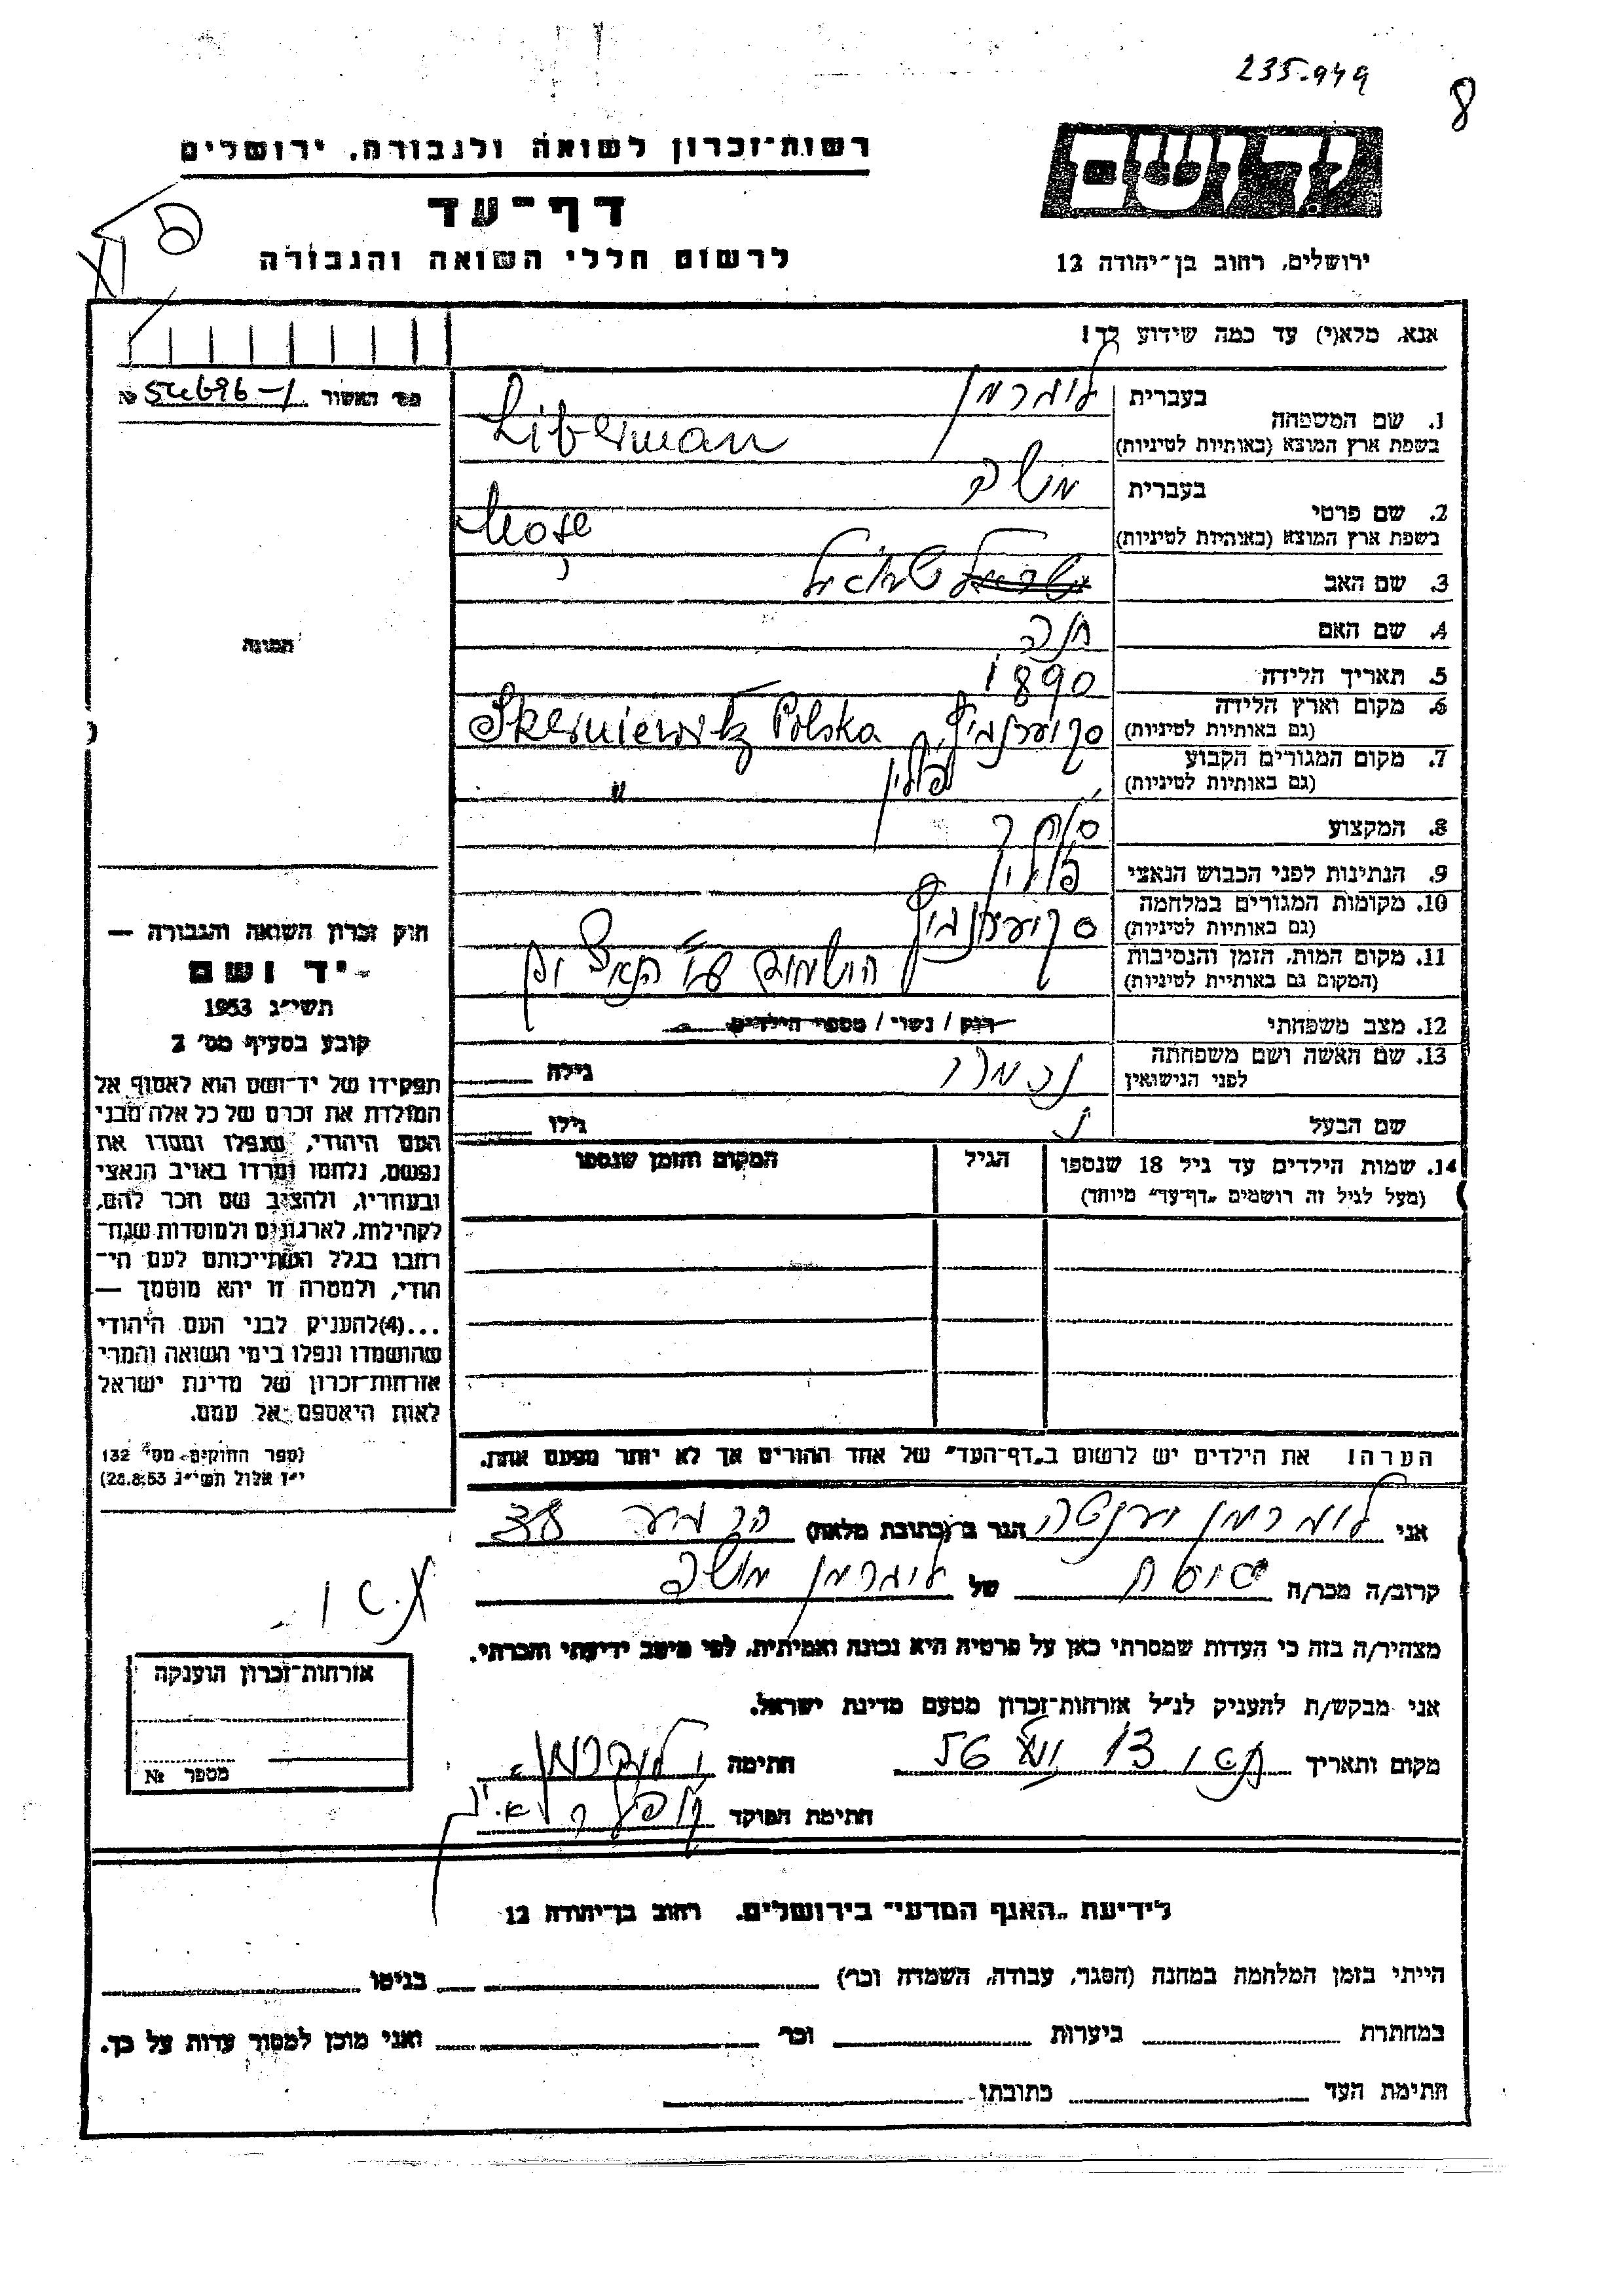 235.949
8
רשות־זכרון לשואה ולגבורה, ירושלים
יד ושם
דף־עד
לרשום חללי השואה והגבורה
ירושלים, רחוב בן־יהודה 12
אנא, מלא(י) עד כמה שידוע לך!
1. שם המשפחה
בעברית ליברמן
בשפת ארץ המוצא (באותיות לטיניות) Liberman
2. שם פרטי
בעברית משה
בשפת ארץ המוצא (באותיות לטיניות) Mose
3. שם האב
4. שם האם חנה
5. תאריך הלידה 1890
6. מקום וארץ הלידה
(גם באותיות לטיניות) Skerniewitz Polska
7. מקום המגורים הקבוע פולין
(גם באותיות לטיניות) "
8. המקצוע סוחר
9. הנתינות לפני הכבוש הנאצי פולין
10. מקומות המגורים במלחמה
(גם באותיות לטיניות)
11. מקום המות, הזמן והנסיבות
(המקום גם באותיות לטיניות)
12. מצב משפחתי רוק / נשוי / מספר הילדים
13. שם האשה ושם משפחתה
לפני הנישואין גילה
שם הבעל גילו
14. שמות הילדים עד גיל 18 שנספו הגיל המקום והזמן שנספו
(מעל לגיל זה רושמים "דף־עד" מיוחד)
הערה! את הילדים יש לרשום ב"דף־העד" של אחד ההורים אך לא יותר מפעם אחת.
מס' האשור № 54696-1
תמונה
חוק זכרון השואה והגבורה —
יד ושם
תשי"ג 1953
קובע בסעיף מס' 2
תפקידו של יד־ושם הוא לאסוף אל
המולדת את זכרם של כל אלה מבני
העם היהודי, שנפלו ומסרו את
נפשם, נלחמו ומרדו באויב הנאצי
ובעוזריו, ולהציב שם וזכר להם,
לקהילות, לארגונים ולמוסדות שנח־
רבו בגלל השתייכותם לעם הי־
הודי, ולמטרה זו יהא מוסמך —
...(4)להעניק לבני העם היהודי
שהושמדו ונפלו בימי השואה והמרי
אזרחות־זכרון של מדינת ישראל
לאות היאספם אל עמם.
(ספר החוקים מס' 132
י"ז אלול תשי"ג 28.8.53)
אני ליברמן הגר ב (כתובת מלאה) 38
קרוב/ה מכר/ה של ליברמן משה
מצהיר/ה בזה כי העדות שמסרתי כאן על פרטיה היא נכונה ואמיתית, לפי מיטב ידיעתי והכרתי.
אני מבקש/ת להעניק לנ"ל אזרחות־זכרון מטעם מדינת ישראל.
מקום ותאריך 13 56 חתימה ליברמן
חתימת הפוקד
אזרחות־זכרון הוענקה
מספר №
לידיעת "האגף המדעי" בירושלים, רחוב בן־יהודה 12
הייתי בזמן המלחמה במחנה (הסגר, עבודה, השמדה וכו') בגיטו
במחתרת ביערות וכו' ואני מוכן למסור עדות על כך.
חתימת העד כתובתו